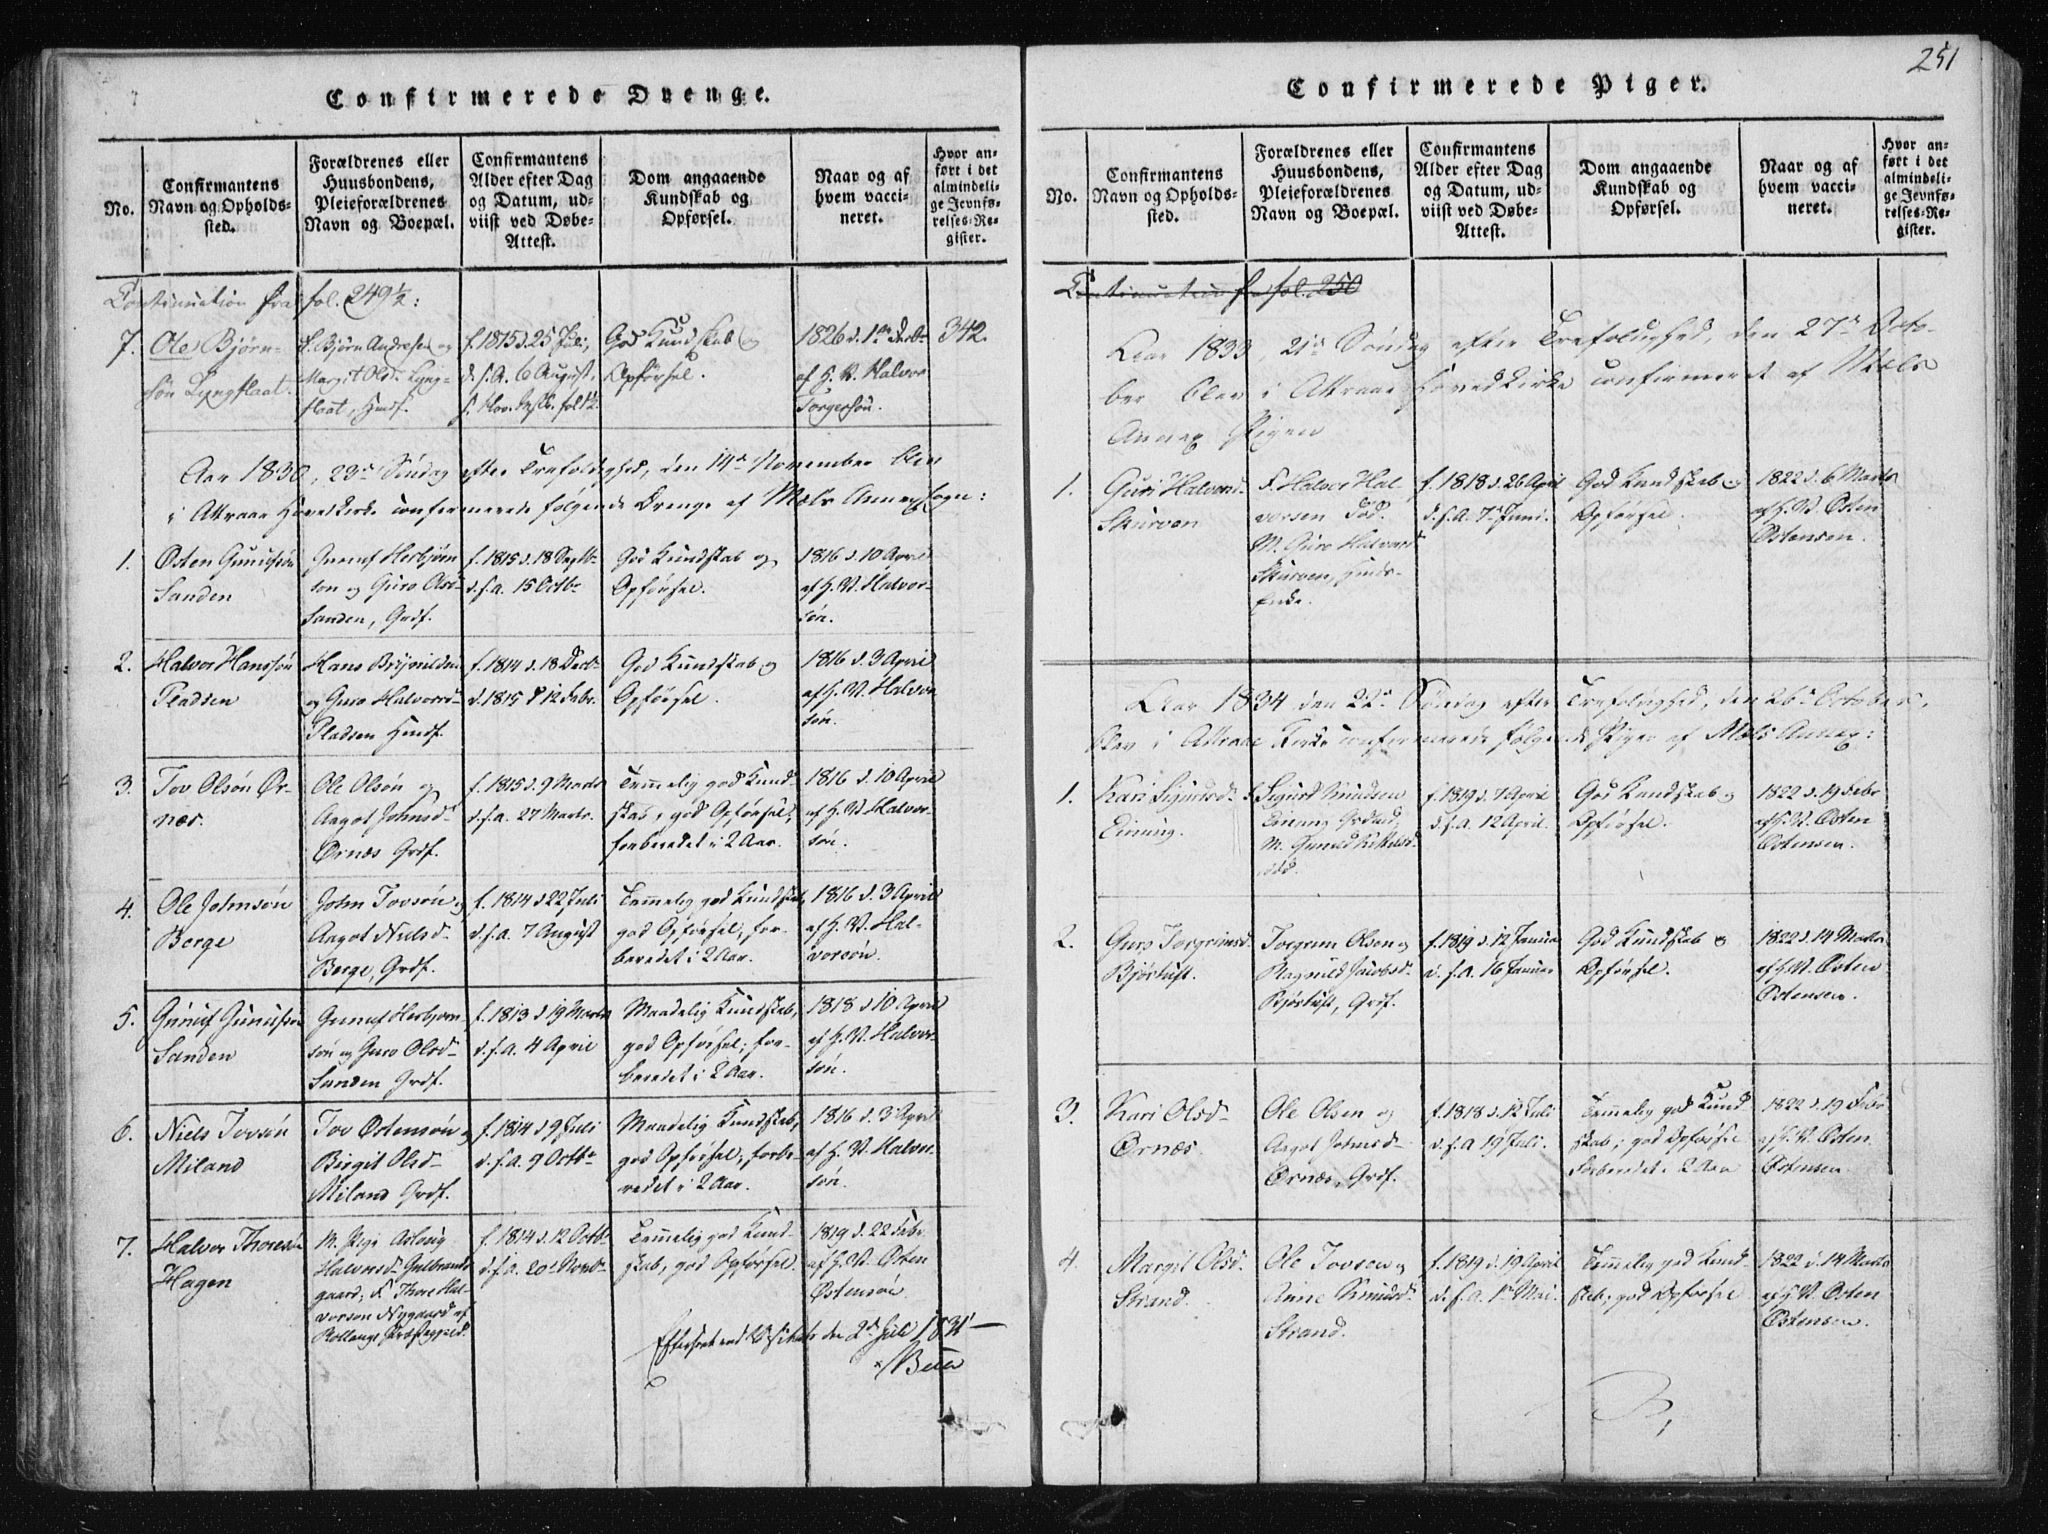 251
Confirmerede Drenge.
No.
Confirmantens Navn og Opholds-sted.
Forældrenes eller Huusbondens, Pleieforældrenes Navn og Boepæl.
Confirmantens Alder efter Dag og Datum, ud-viist ved Døbe-Attest.
Dom angaaende Kundskab og Opførsel.
Naar og af hvem vacci-neret.
Hvor an-ført i det almindeli-ge Jevnfø-relses-Re-gister.
Continuation fra fol. 249½:
7.
Ole Bjørn-
søn Lyngflaat.
F. Bjørn Andresen og
Margit Olsd. Lyng-
flaat, Huusf.
f. 1815 d. 25 Juli,
d. s. A. 6 August,
God Kundskab og
Opførsel.
1826 d. 1ste
af H. V. Halvor
Torgersøn.
342.
Aar 1830, 23de Søndag efter Trefoldighed, den 14de November blev
i Attraae Hovedkirke confirmerede følgende Drenge af Mæls Annexsogn:
1.
Østen Gunufsøn
Sanden
Gunuf Herbjørn-
søn og Guro Olsd.
Sanden, Grdf.
f. 1815 d. 18 Septb.
d. s. A. 15 Octbr
God Kundskab og
Opførsel.
1816 d. 10 April
af H. V. Halvor-
søn.
2.
Halvor Hanssøn
Pladsen
Hans Brynildsen
og Guro Halvorsd.
Pladsen Huusf.
f. 1814 d. 18 Decbr
d. 1815 d 12 Febr.
God Kundskab og
Opførsel.
1816 d. 3 April
af H. V. Halvor
søn.
3.
Tov Olsøn Ør-
næs.
Ole Olsøn og
Aagot Johnsd.
Ørnæs Grdf.
f. 1815 d. 9 Marts
d. s. A. 27 Marts.
Temmelig god Kund
skab, god Opførsel,
forberedet i 2 Aar.
1816 d. 10 April
af H. V. Halvor-
søn.
4.
Ole Johnsøn
Berge
John Tovsøn og
Aagot Nielsd.
Berge, Grdf.
f. 1814 d 22 Juli
d. s. A. 7 August
Temmelig god Kundskab,
god Opførsel, for-
beredet i 2 Aar.
1816 d. 3 April
af H. V. Hal-
vorsøn.
5.
Gunuf Gunufsøn
Sanden
Gunuf Herbjørn-
søn og Guro Olsd.
Sanden Grdf.
f. 1813 d 19 Marts
d. s. A. 4 April
Maadelig Kundskab,
god Opførsel; for-
beredet i 2 Aar.
1818 d 10 April
af H. V. Halvor-
søn.
6.
Niels Tovsøn
Miland
Tov Østensøn og
Birgit Olsd.
Miland Grdf.
f. 1814 d 9 Juli
d. s. A. 9 Octbr
Maadelig Kundskab,
god Opførsel, forbe-
redet i 2 Aar.
1816 d. 3 April
af H. V. Halvor-
søn.
7.
Halvor Thoresøn
Hagen
M. Pige Aslaug
Halvorsd. Gulbrands
gaard; F. Thore Hal-
vorsen Nygaard af
Rollaugs Præstegjeld.
f. 1814 d. 12 Octbr
d. s. A. 20 Novbr
Temmelig god Kund-
skab, god Opførsel
1819 d. 22 Febr
af H. V. Østen
Østensøn
Efterseet ved Visitats den 2de Juli 1831
Confirmerede Piger.
No.
Confirmantens Navn og Opholds-sted.
Forældrenes eller Huusbondens, Pleieforældrenes Navn og Boepæl.
Confirmantens Alder efter Dag og Datum, ud-viist ved Døbe-Attest.
Dom angaaende Kundskab og Opførsel.
Naar og af hvem vacci-neret.
Hvor an-ført i det almindeli-ge Jevnfø-relses-Re-gister.
Continuation fra fol. 250
Aar 1833, 21de Søndag efter Trefoldighed, den 27de Octo-
ber blev i Attraae Hovedkirke confirmeret af Mæls
Annex Pigen
1.
Guri Halvorsd.
Skurven
F. Halvor Hal
vorsen død.
M. Guro Halvorsd
Skurven, Huus-
Enke.
f. 1818 d. 26 April
d. s. A. 7de Juni.
God Kundskab og
Opførsel.
1822 d. 6 Marts
af H. V. Østen
Østensen.
Aar 1834 den 22de Søndag efter Trefoldighed, den 26de October,
blev i Attraae Kirke confirmerede følgende Piger af Mæls Annex:
1.
Kari Sigurdsd.
Einung.
F. Sigurd Knudsen
Einung Grdmd,
M. Gunild Kittelsd.
død.
f. 1819 d. 7 April
d. s. A. 12 April.
God Kundskab og
Opførsel.
1822 d. 19 Febr
af H. V. Østen
Østensen.
2.
Guro Torgrimsd.
Bjørtuft.
Torgrim Olsen og
Ragnild Jacobsd.
Bjørtuft, Grdf.
f. 1819 d. 12 Januar
d. s. A. 16 Januar
God Kundskab og
Opførsel.
1822 d. 14 Marts
af H. V. Østen
Østensen.
3.
Kari Olsd.
Ørnæs.
Ole Olsen og
Aagot Johnsd.
Ørnæs, Grdf.
f. 1818 d. 12 Juli
d. s. A 19 Juli.
Temmelig god Kund
skab; god Opførsel
forberedet i 2 Aar
1822 d. 19 Febr
af H. V. Østen
Østensen.
4.
Margit Olsd.
Strand.
Ole Tovsen og
Anne Knudsd.
Strand.
f. 1819 d. 19 April
d. s. A. 1ste Mai.
Temmelig god Kund-
skab; god Opførsel
1822 d. 14 Marts
af H. V. Østen
Østensen.